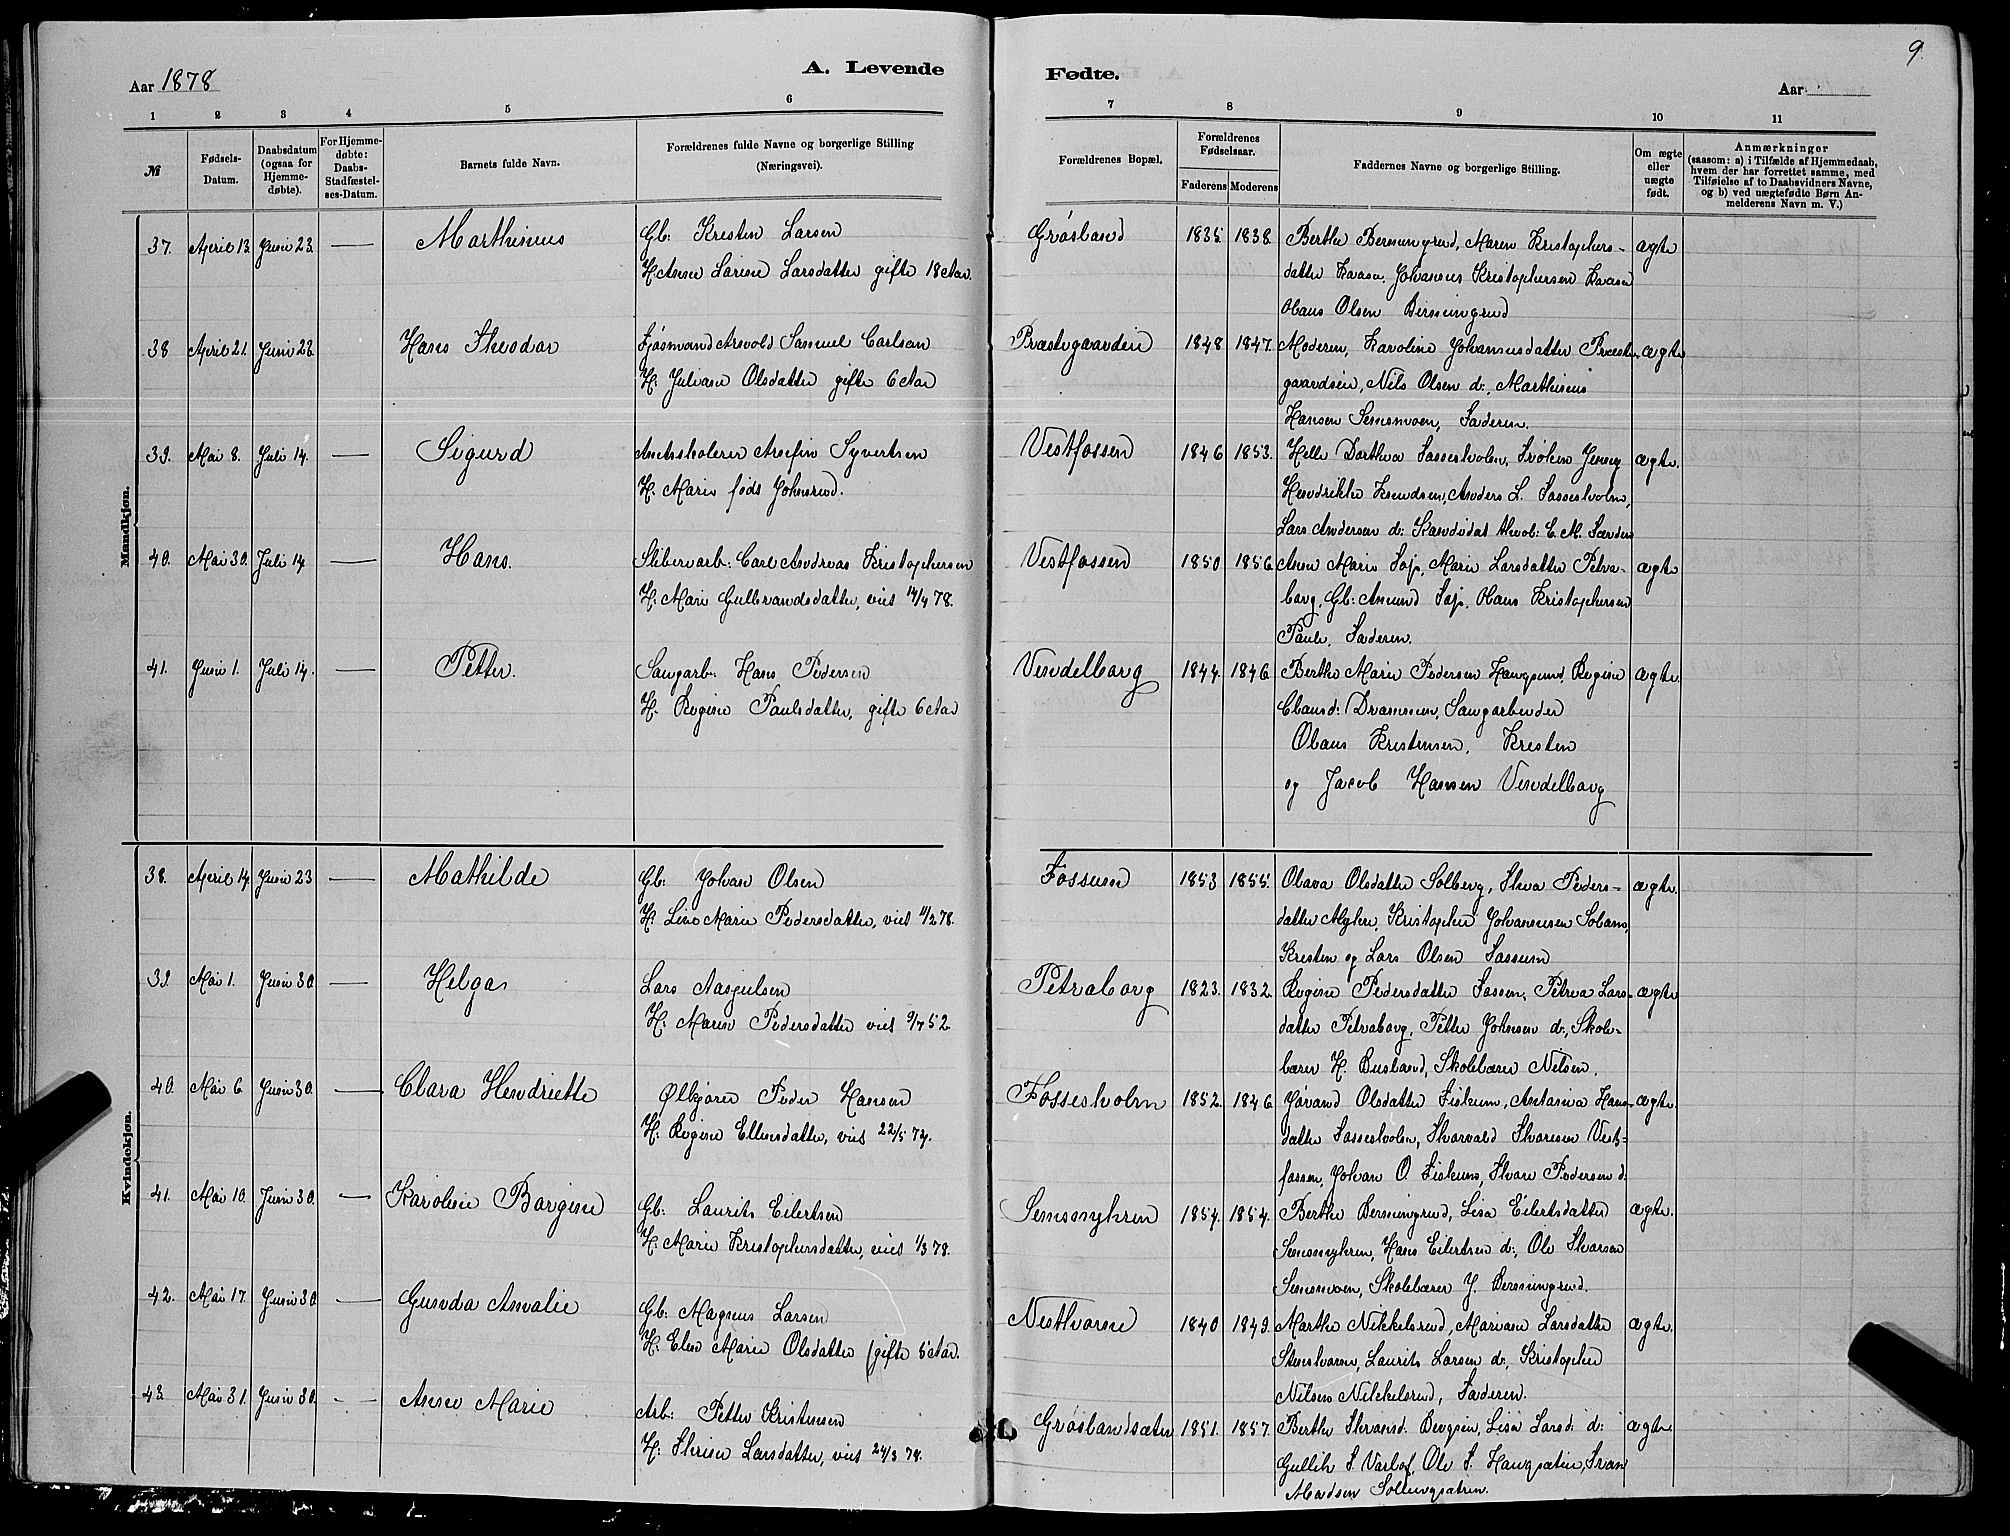 9.
Aar 1878
A. Levende
Fødte.
Aar
1 2 3 4 5 6
7 8 9 10 11
№
Fødsels-Datum.
Daabsdatum (ogsaa for Hjemme-døbte).
For Hjemme-døbte: Daabs-Stadfæstel-ses-Datum.
Barnets fulde Navn.
Forældrenes fulde Navne og borgerlige Stilling (Næringsvei).
Forældrenes Bopæl.
Forældrenes Fødselsaar.
Faderens Moderens
Faddernes Navne og borgerlige Stilling.
Om ægte eller uægte født.
Anmærkninger
(saasom: a) i Tilfælde af Hjemmedaab,
hvem der har forrettet samme, med
Tilføielse af to Daabsvidners Navne,
og b) ved uægtefødte Børn An-
melderens Navn m. V.)
Mandkjøn.
37. April 13. Juni 23. — Marthinius
Gb: Kresten Larsen
H. Anne Larine Larsdatter gifte 18 Aar.
Grøsland 1835 1838.
Berthe Bermingrud, Maren Kristophers-
datter Kaasa, Johannes Kristophersen Kaasen
Olaus Olsen Bermingrud
ægte
38 April 21. Juni 23. — Hans Theodor
Fjøsmand Arvold Samuel Carlsen
H: Juliane Olsdatter gifte 6 Aar
Præstegaarden 1848 1847.
Moderen, Karoline Johannesdatter Præste-
gaardseie, Nils Olsen d:, Marthinius
Hansen Semsmoen, Faderen.
ægte
39. Mai 8. Juli 14. — Sigurd
Amtsskolerer Arnfin Syvertsen
H. Marie føds Johnsrud.
Vestfossen 1846 1853.
Helle Dorthea Fossesholm, Frøken Jensy
Hendrikke Knudsen, Anders L. Fossesholm,
Lars Andersen d: Kandidat theol: E. M.
ægte.
40. Mai 30. Juli 14 — Hans.
Sliberarb: Carl Andreas Kristophersen
H: Mari Gulbrandsdatter, viet 14/4 78.
Vestfossen 1850 1856.
Anne Marie Søj, Marie Larsdatter Petra-
borg, Gb: Amund Søj, Olaus Kristophersen
Faderen.
ægte
41. Juni 1. Juli 14. — Petter.
Saugarb. Hans Pedersen
H. Regine Paulsdatter, gifte 6 Aar
Vendelborg 1844. 1846.
Berthe Marie Pedersen Haugsund, Regine
Clausd: Drammen, Saugarbeider
Olaus Kristensen, Kresten
og Jacob Hansen Vendelborg
ægte.
Kvindekjøn.
38. April 14. Juni 23 — Mathilde
Gb: Johan Olsen
H: Lina Marie Pedersdatter, viet 1/2 78.
Fossum 1853 1855.
Olava Olsdatter Solberg, Thea Peders-
datter Myhre, Kristopher Johannesen Solberg,
Kresten og Lars Olsen Fossum
ægte.
39. Mai 1. Juni 30. — Helga
Lars Aasjulsen
H: Maren Pedersdatter viet 9/7 52.
Petraborg 1823. 1832.
Regine Pedersdatter Fossen, Petrea Lars-
datter Petraborg, Petter Johnsen d:, Skole-
lærer H. Busland, Skolelærer Nilsen.
ægte
40. Mai 6 Juni 30. — Clara Hendriette
Ølkjører Peder Hansen
H: Regine Ellensdatter, viet 22/5 74.
Fossesholm 1852. 1846.
Jørand Olsdatter Fiskum, Antonia Hans-
datter Fossesholm, Thorvald Thoresen Vest-
fossen, Johan O. Fiskum, Thore Pedersen d:
ægte.
41. Mai 10. Juni 30. — Karoline Borgine
Gb: Laurits Eilertsen
H: Marie Kristophersdatter, viet 1/3 78.
Semsmyhren 1854. 1854.
Berthe Bermingrud, Lisa Eilertsdatter
Semsmyhren, Hans Eilertsen d:, Ole Thorsen
Semsmoen, Skolelærer J. Bermingrud.
ægte.
42. Mai 17 Juni 30. — Gunda Amalie
Gb: Magnus Larsen
H: Elen Marie Olsdatter (gifte 5 Aar.
Nesthorne 1840 1849.
Marthe Nikkelsrud, Mariane Larsdatter
Stenshorne, Laurits Larsen d:, Kristopher
Nilsen Nikkelsrud, Faderen.
ægte.
43. Mai 31. Juni 30. — Anne Marie
Arb: Petter Kristensen
H: Thrine Larsdatter, viet 24/3 78.
Grøslandsæter 1851. 1857.
Berthe Thronsd. Bergsen, Lisa Larsd: d:
Gullik T. Varlo, Ole T. Haugsæter, Iver
Madsen Sollungsætren.
ægte.